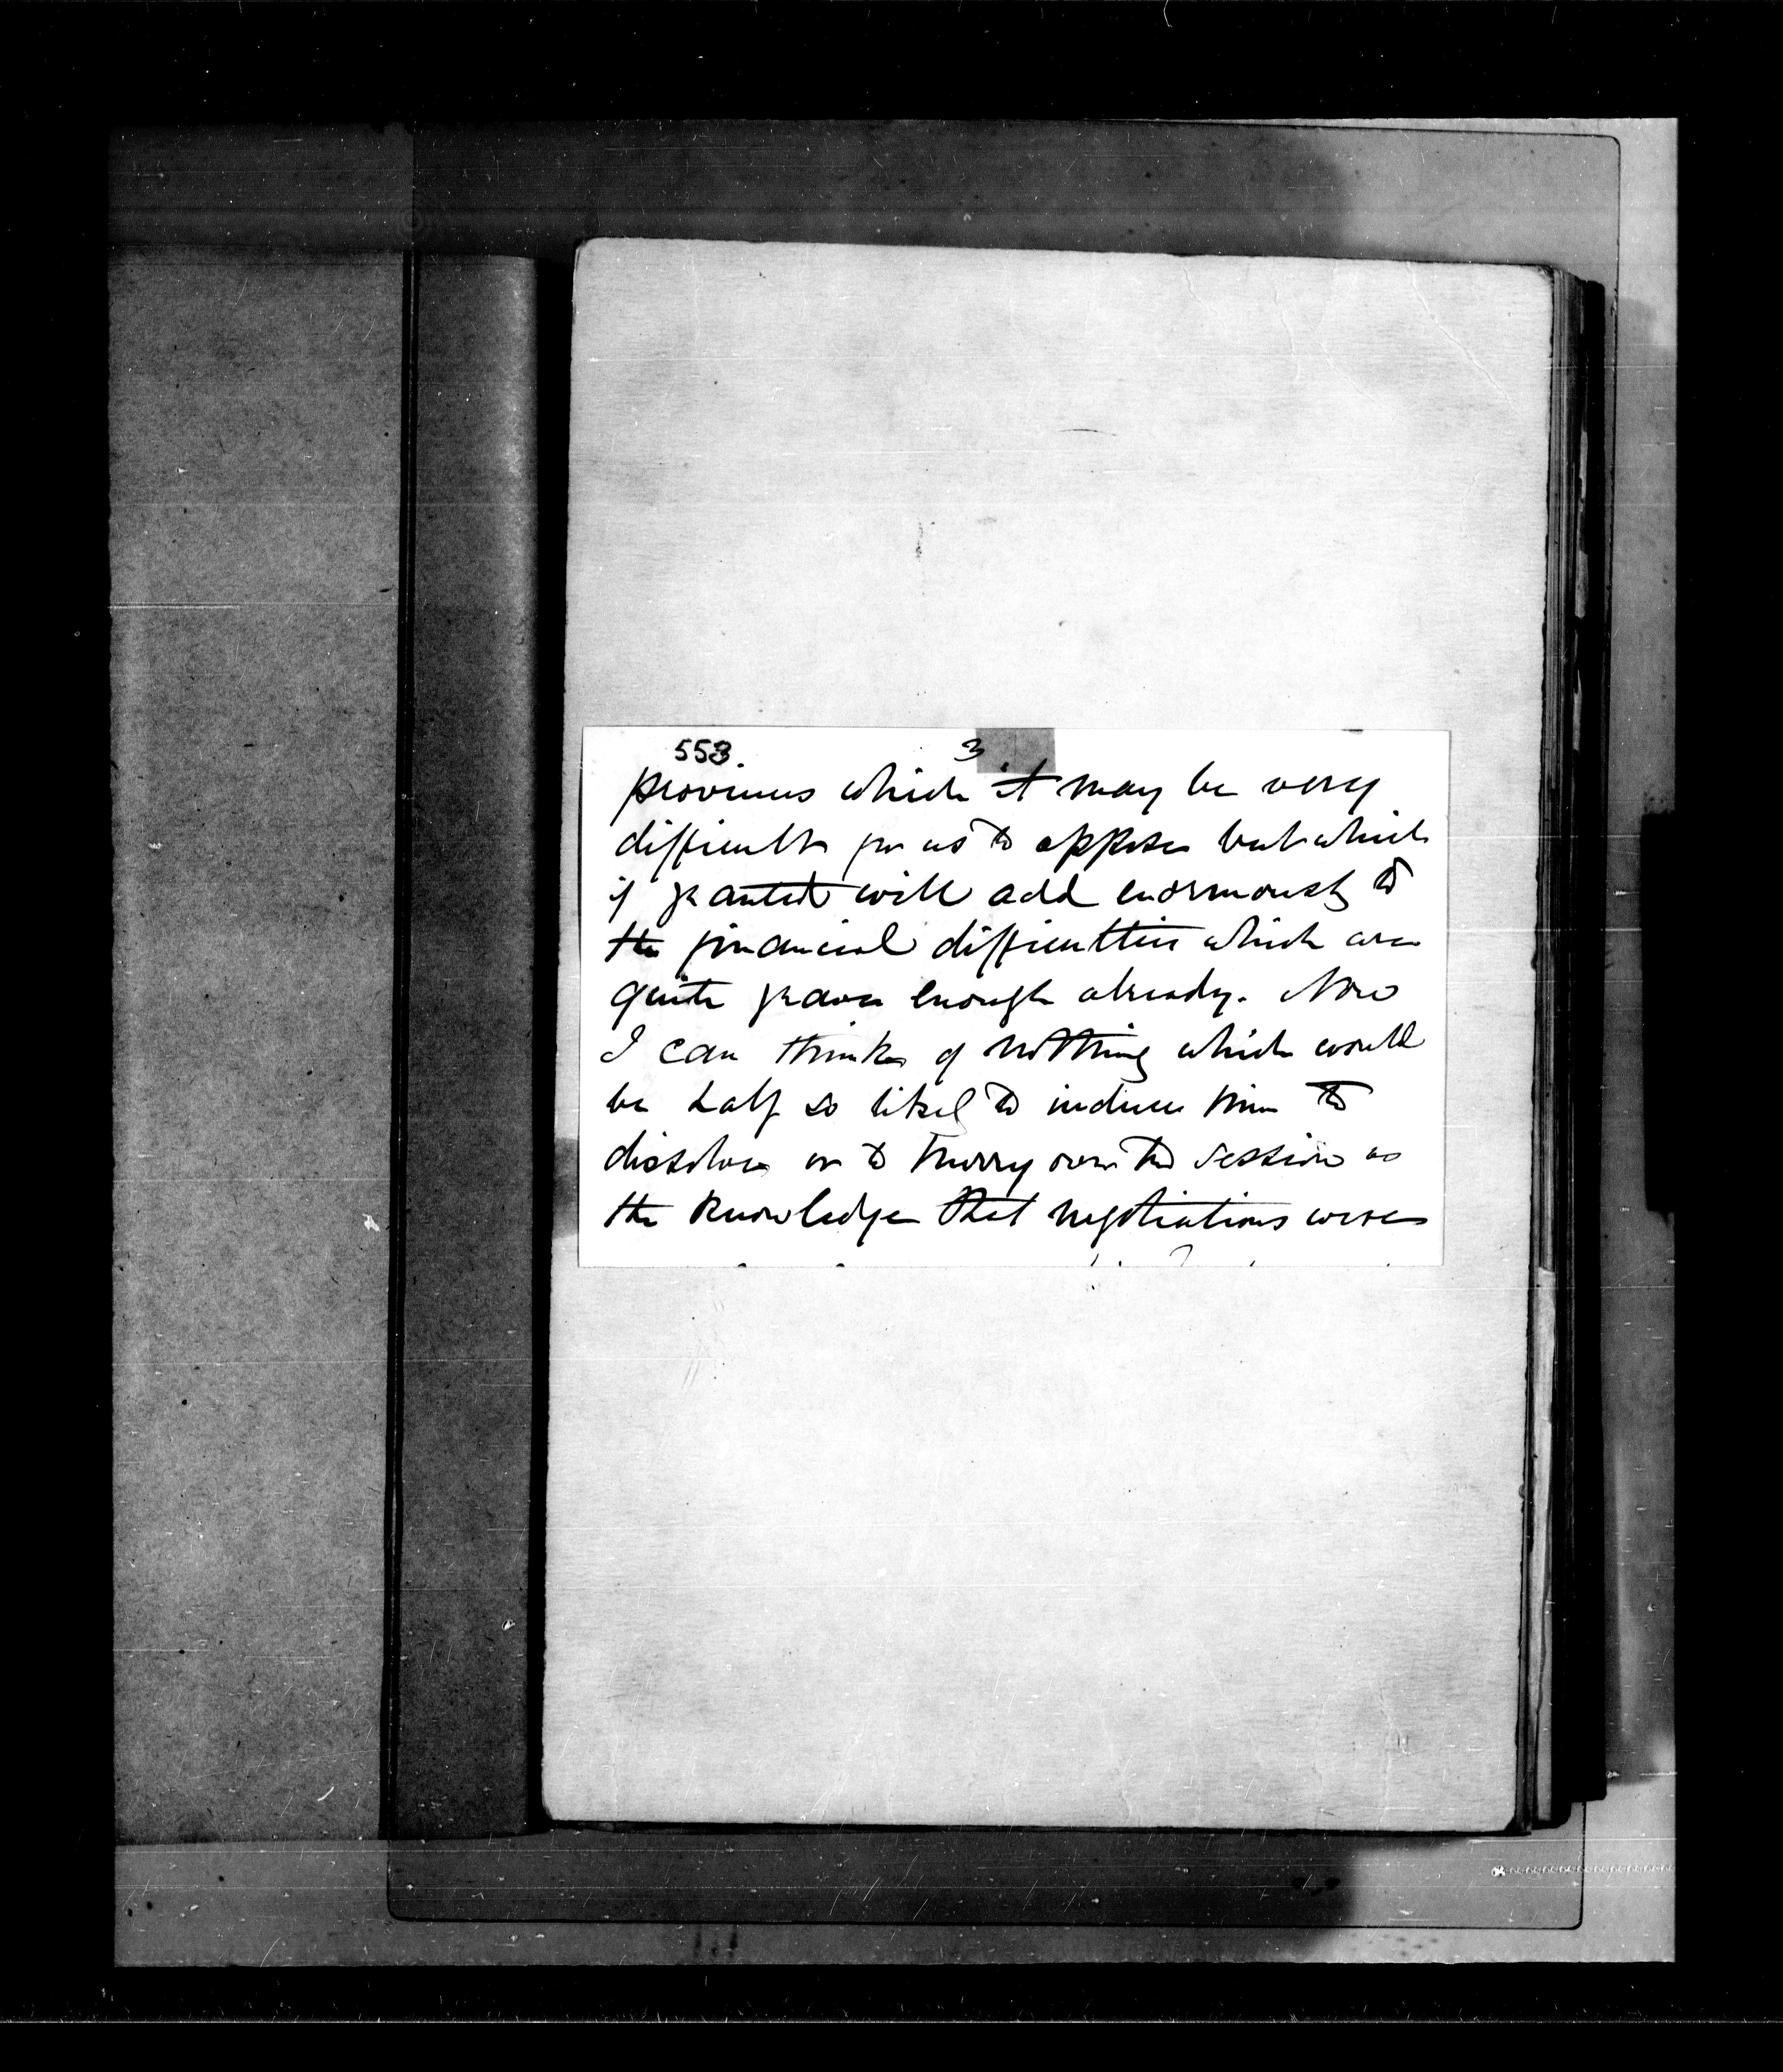 553. 3
provinces which it may be very
difficult for us to oppose but which
if granted will add enormously to
the financial difficulties which are
quite grave enough already. Now
I can think of nothing which would
be half so likely to induce him to
dissolve or to hurry over the session as
the knowledge that negotiations were